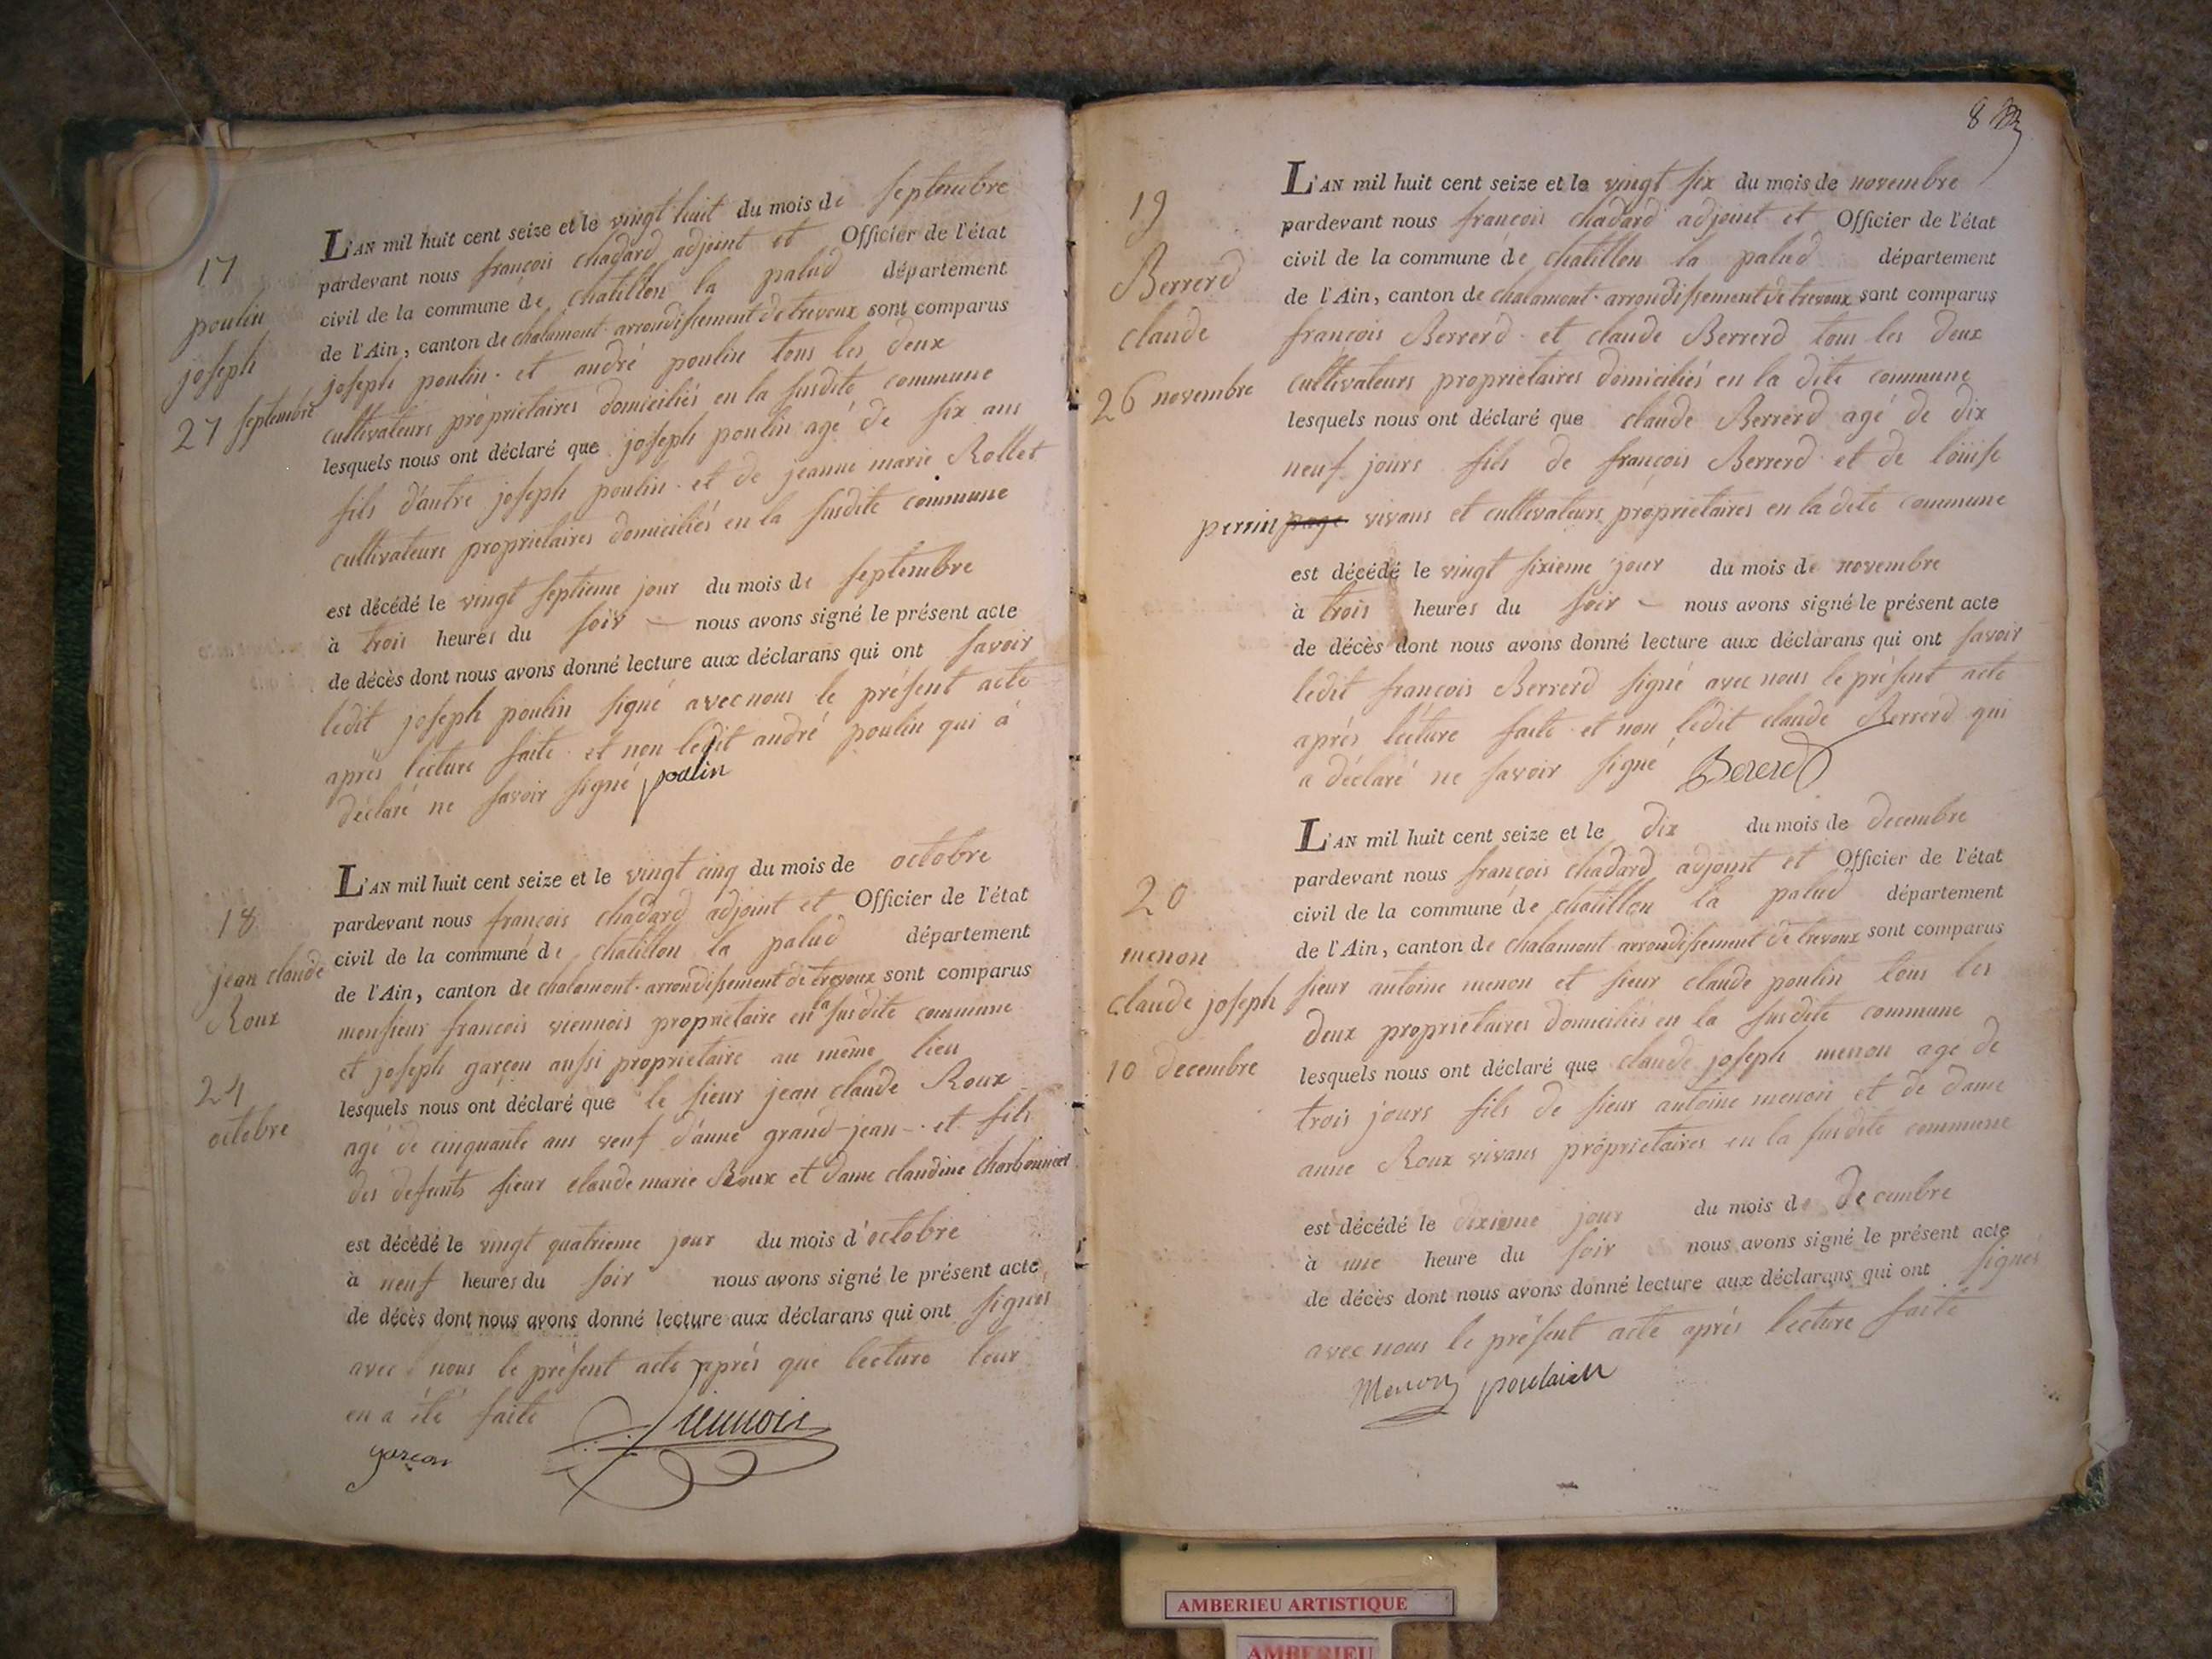 17
poulin
joseph
27 septembre
L'AN mil huit cent seize et le vingt huit du mois de septembre
pardevant nous françois chadard adjoint et Officier de l'état
civil de la commune de chatillon la palud département
de l'Ain, canton de chalamont arrondissement de trevoux sont comparus
joseph poulin et andré poulin tous les deux
cultivateurs propriétaires domiciliés en la susdite commune
lesquels nous ont déclaré que joseph poulin agé de six ans
fils d'autre joseph poulin et de jeanne marie Rollet
cultivateurs propriétaires domiciliés en la susdite commune
est décédé le vingt septieme jour du mois de septembre
à trois heures du soir nous avons signé le présent acte
de décès dont nous avons donné lecture aux déclarans qui ont savoir
ledit joseph poulin signé avec nous le présent acte
après lecture faite et non ledit andré poulin qui à
déclaré ne savoir signé poulin
18
jean claude
Roux
24
octobre
L'AN mil huit cent seize et le vingt cinq du mois de octobre
pardevant nous françois chadard adjoint et Officier de l'état
civil de la commune de chatillon la palud département
de l'Ain, canton de chalamont arrondissement de trevoux sont comparus
monsieur francois viennois propriétaire en la susdite commune
et joseph garçon aussi propriétaire au même lieu
lesquels nous ont déclaré que le sieur jean claude Roux
agé de cinquante ans veuf d'anne grand-jean et fils
des defunts sieur claude marie Roux et dame claudine Charbonnier
est décédé le vingt quatrieme jour du mois d'octobre
à neuf heures du soir nous avons signé le présent acte
de décès dont nous avons donné lecture aux déclarans qui ont signés
avec nous le présent acte après que lecture leur
en a été faite
garcon viennois
8
19
Berrerd
claude
26 novembre
L'AN mil huit cent seize et le vingt six du mois de novembre
pardevant nous françois chadard adjoint et Officier de l'état
civil de la commune de chatillon la palud département
de l'Ain, canton de chalamont arrondissement de trevoux sont comparus
françois Berrerd et claude Berrerd tous les deux
cultivateurs proprietaires domiciliés en la dite commune
lesquels nous ont déclaré que claude Berrerd agé de dix
neuf jours fils de françois Berrerd et de loüise
perrin page vivans et cultivateurs proprietaires en la dite commune
est décédé le vingt sixieme jour du mois de novembre
à trois heures du soir nous avons signé le présent acte
de décès dont nous avons donné lecture aux déclarans qui ont savoir
ledit françois Berrerd signé avec nous le présent acte
après lecture faite et non ledit claude Berrerd qui
a déclaré ne savoir signé Bererd
20
menon
claude joseph
10 decembre
L'AN mil huit cent seize et le dix du mois de decembre
pardevant nous françois chadard adjoint et Officier de l'état
civil de la commune de chatillon la palud département
de l'Ain, canton de chalamont arrondissement de trevoux sont comparus
sieur antoine menon et sieur claude poulin tous les
deux proprietaires domiciliés en la susdite commune
lesquels nous ont déclaré que claude joseph menon age de
trois jours fils de sieur antoine menon et de dame
anne Roux vivans propriétaires en la susdite commune
est décédé le dixieme jour du mois de decembre
à une heure du soir nous avons signé le présent acte
de décès dont nous avons donné lecture aux déclarans qui ont signés
avec nous le présent acte après lecture faite
Menon
AMBERIEU ARTISTIQUE
AMBERIEU